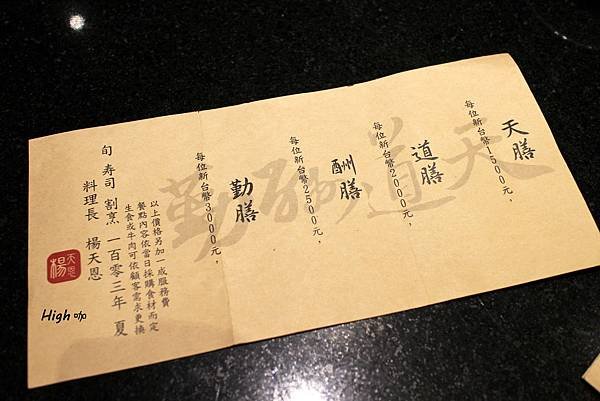 天膳
每位新台幣1500元，
道膳
每位新台幣2000元，
酬膳
每位新台幣2500元，
勤膳
每位新台幣3000元，
天道酬勤
以上價格另加一成服務費
餐點內容依當日採購食材而定
生食或牛肉可依顧客需求更換
旬 寿司 割烹 一百零三年 夏
料理長 楊天恩
楊天恩
High咖